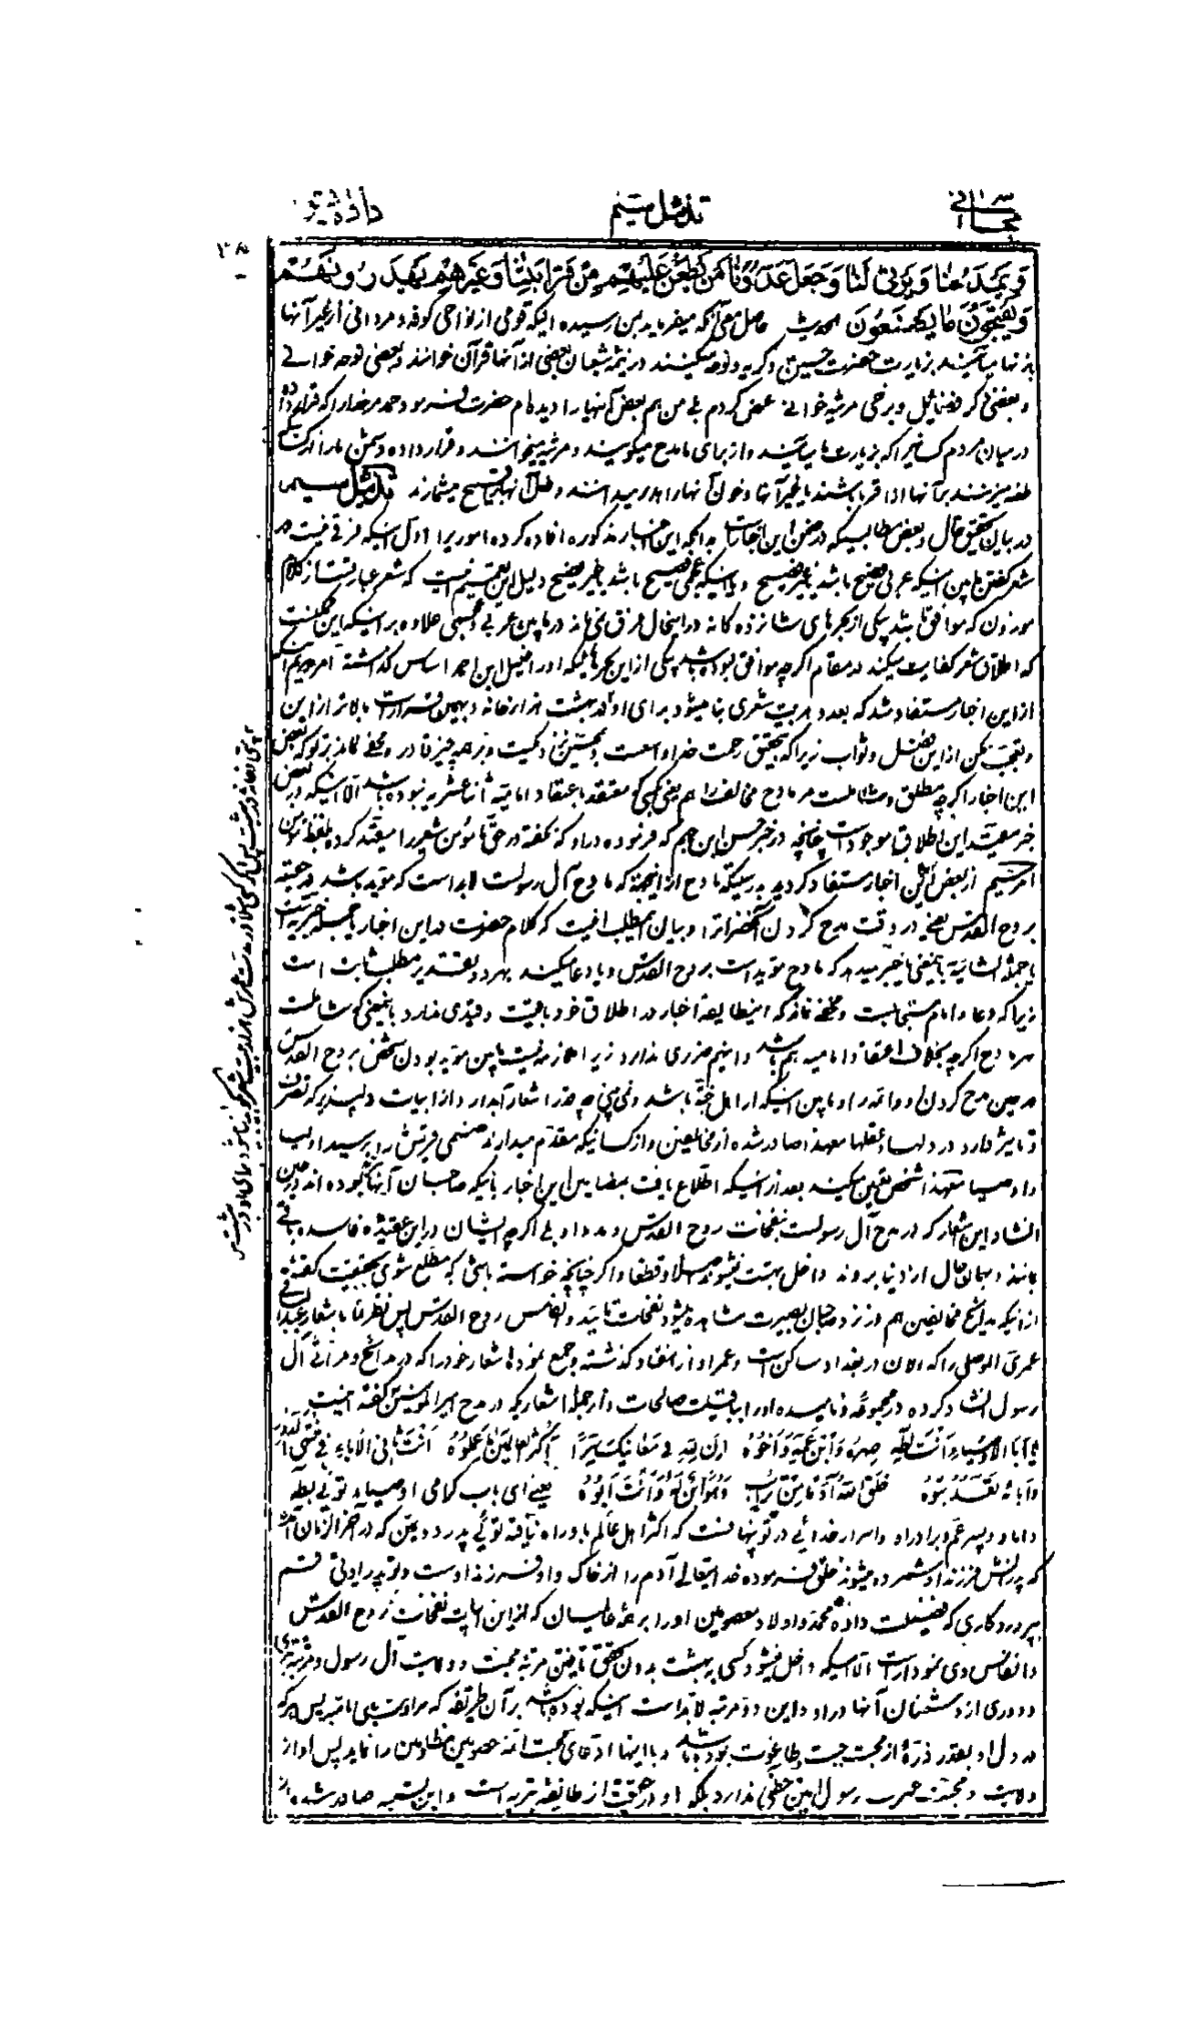 تذییل متیم
وَيَمْدَحُنَا وَيَرْثِي لَنَا وَجَعَلَ عَدُوَّنَا مَنْ يَطْعُنُ عَلَيْهِمْ مِنْ قَرَابَتِنَا وَغَيْرِهِمْ يَهْدِرُونَهُمْ
وَيُقَبِّحُونَ مَا يَصْنَعُونَ الحدیث حاصل معنی آنکه میفرماید بمن رسیده اینکه قومی از نواحی کوفه و مردانی از غیر آنها
بزیارت حضرت حسین و گریه و نوحه میکنند در نیمه شعبان بعضی از آنها قرآن خوانند و بعضی نوحه خوانی
و بعضی ذکر فضائل و برخی مرثیه خوانی عرض کردم بلی من هم بعض آنها را دیده‌ام حضرت فرمود حمد مر خدا را که قرار داد
در میان مردم کسانیرا که بزیارت ما میآیند و از برای ما مدح میگویند و مرثیه میخوانند و قرار داده دشمن ما را
طعنه میزنند بر آنها از اقربا باشند یا غیر آنها و خون آنها را هدر میدانند و عمل آنها را قبیح میشمارند تذییل
در بیان تحقیق حال و بعض مطالبیکه در ضمن این اخبار است بدانکه این اخبار مذکوره افاده کرده اموریرا اول اینکه فرقی نیست در
شعر گفتن مابین اینکه عربی فصیح باشد یا غیر فصیح و یا اینکه عجمی فصیح باشد یا غیر فصیح دلیل این تعمیم اینست که شعر عبارتست از کلام
موزون که موافق باشد یکی از بحرهای شانزده گانه در اینحال فرق نمی ماند در مابین عربی و عجمی علاوه بر اینکه این
که اطلاق شعر کفایت میکند در مقام اگر چه موافق نبوده باشد یکی از این بحرهائیکه او را خلیل ابن احمد اساس گذاشته امر دویم آنکه
از این اخبار مستفاد شد که بعدد هر بیت شعری بنا میشود برای او در بهشت هزار خانه و بهمین قرار است بالاتر از این
و تعجب مکن از این فضل و ثواب زیرا که بتحقیق رحمت خدا واسعت و همچنین کمیت و بر همه چیز قادر و مخفی نماند بر تو که بعض
این اخبار اگر چه مطلق و شاملست مر مادح مخالف را هم یعنی کسی که معتقد باعتقاد امامیه اثنا عشریه نبوده باشد الا اینکه در بعض
خبر مقید این اطلاق موجود است چنانچه در خبر حسن ابن جهم که فرموده در او که نگفته در حق ما مؤمن شعریرا مقید کرده بلفظ مؤمن
امر سیم از بعض این اخبار مستفاد گردید بدرستیکه مادح از اینجهة که مادح آل رسولست لابد است که مؤید باشد
بروح القدس یعنی در وقت مدح کردن آنحضرات و بیان مطلب اینست که کلام حضرت در این اخبار یا جمله خبریه است
یا جمله انشائیه یا یعنی یا خبر میدهد که مادح مؤید است بروح القدس و یا دعا میکنند بهر دو تقدیر مطلب ثابت است
زیرا که دعاء امام مستجابست و مخفی نماند که اینطایفه اخبار در اطلاق خود باقیست و قیدی ندارد باینمعنی که شاملست
هر مادح اگر چه بخلاف اعتقاد امامیه هم باشد و اینهم ضرری ندارد زیرا ملازمه نیست مابین مؤید بودن شخص بروح القدس
در حین مدح کردن او ائمه را و مابین اینکه از اهل جنة باشد و نمی بینی چه قدر اشعار آبدار و از ابیات دلپذیر که
و تأثیر دارد در دلها و عقلها معهذا صادر شده از مخالفین و از کسانیکه مقدم میدارند صنمی قریش را بر سید اولیا
و اوصیا معهذا شخص یقین میکند بعد از اینکه اطلاع یافت بمضامین این اخبار باینکه صاحبان آنها بوده‌اند در حین
انشاد این اشعار که در مدح آل رسولست بنفحات روح القدس و مدد او بلی اگر چه ایشان در این عقیده فاسده باقی
بمانند و بهمان حال از دنیا بروند داخل بهشت نمیشوند اصلا و قطعا و اگر چنانچه خواسته باشی که مطلع شوی بحقیقت گفته
از اینکه مدایح مخالفین هم در نزد صاحبان بصیرت مشاهده میشود نفحات تأیید و نفس روح القدس پس نظر نما باشعار عبدالباقی
عمری الموصلی را که الان در بغداد ساکن است و عمر او از هفتاد گذشته و جمع نموده اشعار خود را که در مدائح و مراثی آل
رسول انشاد کرده در مجموعهٔ و نامیده او را باقیات صالحات و از جمله اشعاریکه در مدح امیرالمؤمنین گفته اینست
یَا اَبَا الاَوْصِیَاءِ اَنْتَ لِطٰهٰ صِهْرُهُ وَابْنُ عَمِّهِ وَاَخُوهُ اِنَّ لِلّٰهِ فِی مَعَانِیکَ سِرًّا اَکْثَرُ الْعَالَمِینَ مَا عَلِمُوهُ اَنْتَ ثَانِی الْاٰبَاءِ فِی مُنْتَهَی الدَّوْرِ
وَآبَائُهُ تُعَدُّ بَنُوهُ خَلَقَ اللّٰهُ آدَمًا مِنْ تُرَابٍ وَهُوَ ابْنٌ لَهُ وَاَنْتَ اَبُوهُ یعنی ای باب گرامی اوصیاء توئی بطه
داماد و پسر عم و برادر او و اسرار خدائی در تو پنهانست که اکثر اهل عالم باو راه نیافته توئی پدر دویمین که در آخر الزمان آمده
که پدرانش فرزند او شمرده میشوند خلق فرموده خدایتعالی آدم را از خاک و او فرزند اوست و تو پدر اوئی قسم
بپروردگاری که فضیلت داده محمد و اولاد معصومین او را بر همه عالمیان که از این ابیات نفحات روح القدس
و انفاس وی نمودار است الا اینکه داخل نمیشود کسی به بهشت بدون تحقق یافتن مرتبه محبت و ولایت آل رسول و مرتبه تبری
و دوری از دشمنان آنها در او و این دو مرتبه لابد است اینکه بوده باشد بر آن طریقه که مراد است پس هر که
در دل او بقدر ذرهٔ از محبت جبت و طاغوت بوده باشد و با اینها ادعای محبت ائمه معصومین مظلومین را نماید پس او از
ولایت و محبت عترت رسول امین حظی ندارد بلکه او در حقیقت از طائفه بتریه است و این تسمیه صادر شده از